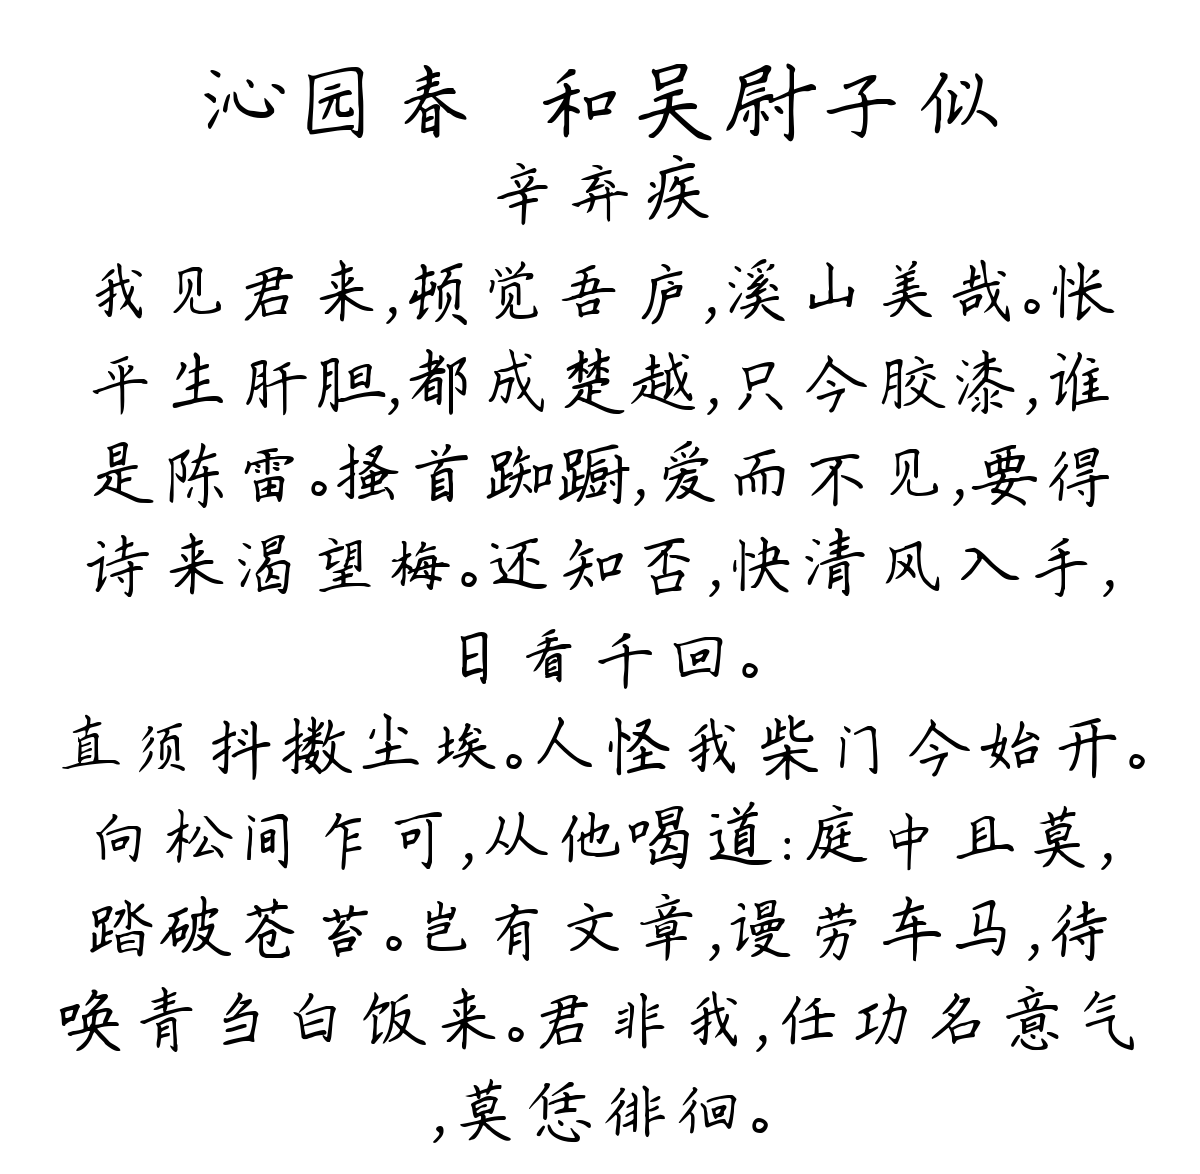 沁园春 和吴尉子似
辛弃疾
我见君来,顿觉吾庐,溪山美哉。怅
平生肝胆,都成楚越,只今胶漆,谁
是陈雷。搔首踟蹰,爱而不见,要得
诗来渴望梅。还知否,快清风入手,
日看千回。
直须抖擞尘埃。人怪我柴门今始开。
向松间乍可,从他喝道:庭中且莫,
踏破苍苔。岂有文章,谩劳车马,待
唤青刍白饭来。君非我,任功名意气
,莫恁徘徊。